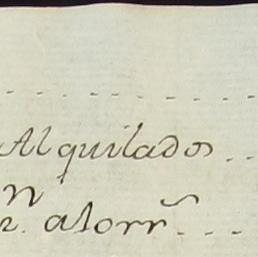 Alquilados
n. alorr